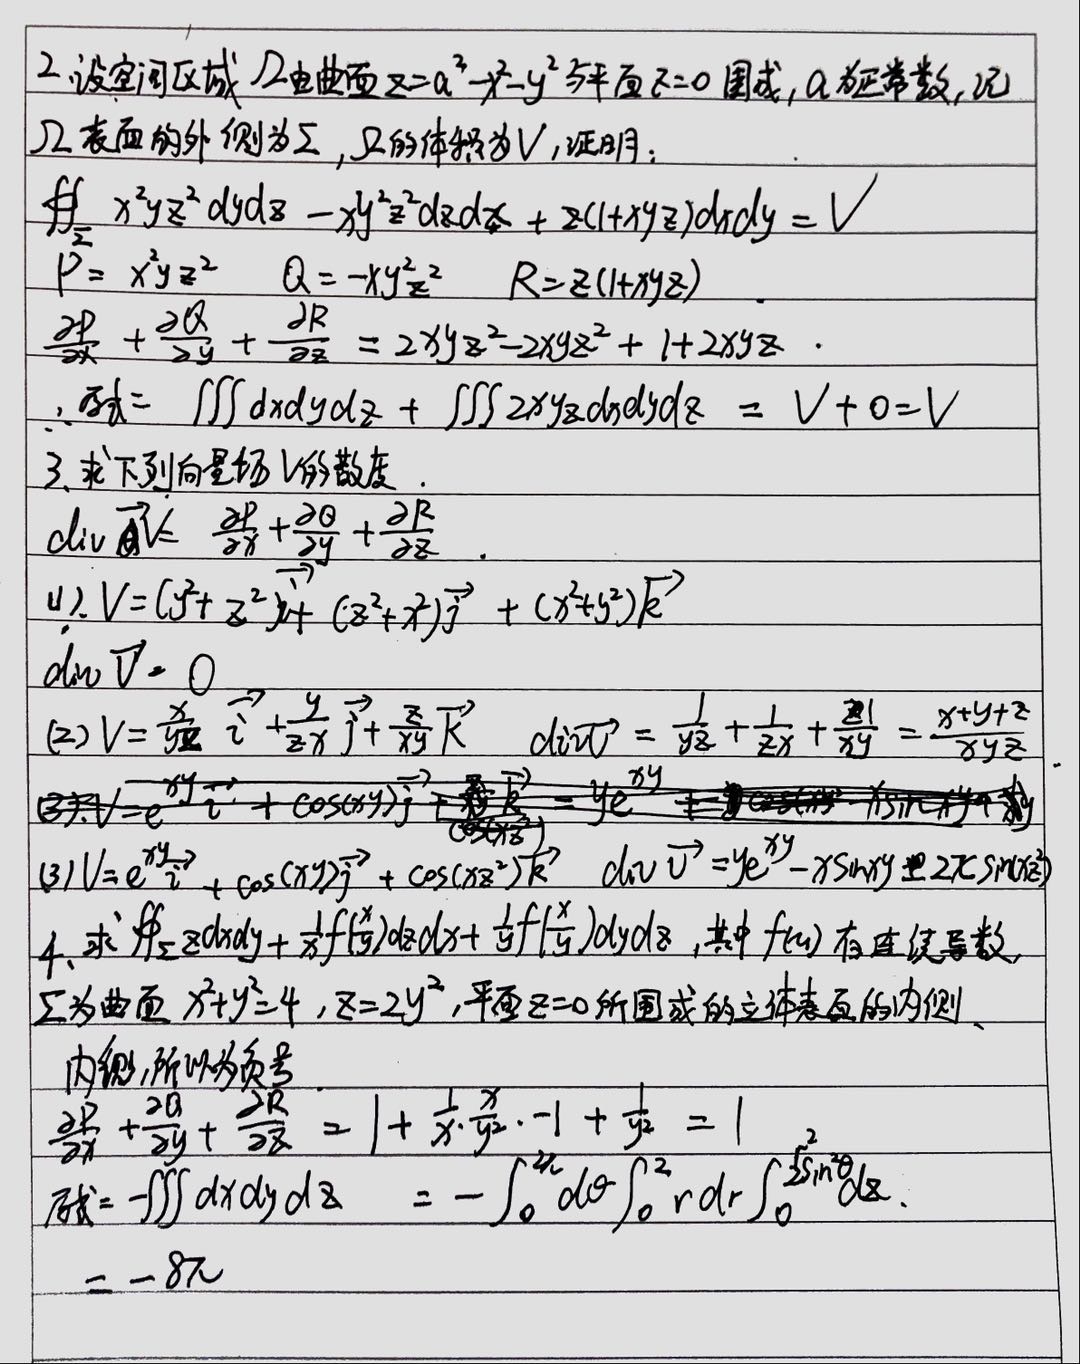 2.设空间区域Ω由曲面z=a²-x²-y²与平面z=0围成,a为正常数,记
Ω表面的外侧为Σ,Ω的体积为V,证明:
∯_Σ x²yz²dydz - xy²z²dzdx + z(1+xyz)dxdy = V
P = x²yz² Q = -xy²z² R = z(1+xyz)
∂P/∂x + ∂Q/∂y + ∂R/∂z = 2xyz² - 2xyz² + 1 + 2xyz
∴原式 = ∭dxdydz + ∭2xyzdxdydz = V+0 = V
3、求下列向量场V的散度
div V⃗ = ∂P/∂x + ∂Q/∂y + ∂R/∂z
(1). V = (y²+z²)i⃗ + (z²+x²)j⃗ + (x²+y²)k⃗
div V⃗ = 0
(2) V = x/yz i⃗ + y/zx j⃗ + z/xy k⃗ div V⃗ = 1/yz + 1/zx + 1/xy = x+y+z/xyz
(3). V = e^xy i⃗ + cos(xy)j⃗ + k⃗ = ye^xy
cos(xz²)
(3) V = e^xy i⃗ + cos(xy)j⃗ + cos(xz²)k⃗ div V⃗ = ye^xy - xsinxy - 2xzsin(xz²)
4、求∯_Σ zdxdy + 1/x f(x/y)dzdx + 1/y f(x/y)dydz,其中f(u)有连续导数,
Σ为曲面x²+y²=4,z=2y²,平面z=0所围成的立体表面的内侧、
内侧,所以为负号
∂P/∂x + ∂Q/∂y + ∂R/∂z = 1 + 1/x · x/y² · -1 + 1/y² = 1
原式 = -∭dxdydz = -∫₀^2π dθ ∫₀² r dr ∫₀^2r²sin²θ dz.
= -8π